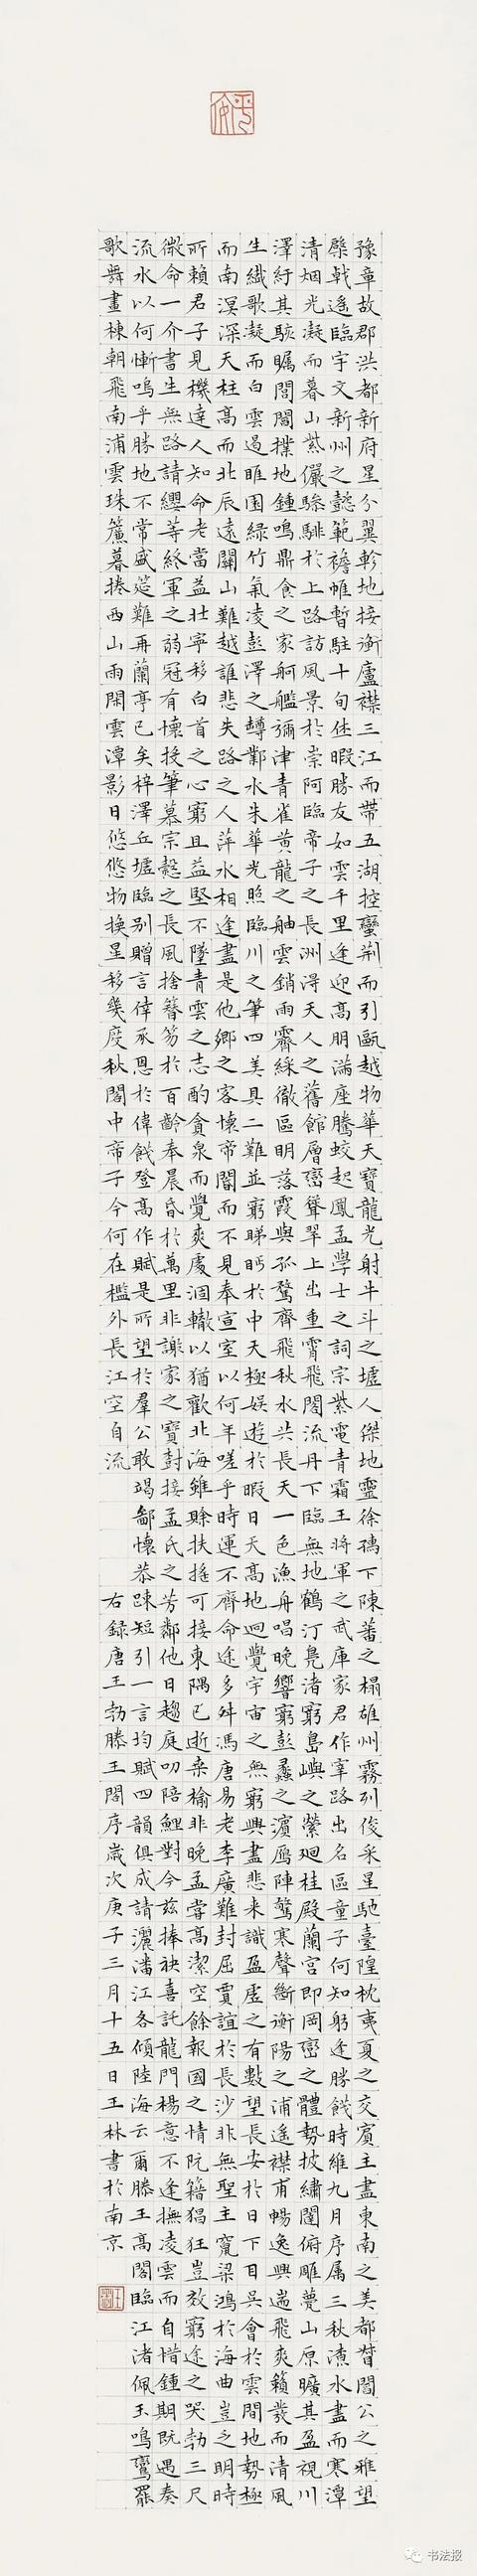 豫章故郡洪都新府星分翼軫地接衡廬襟三江而帶五湖控蠻荆而引甌越物華天寶龍光射牛斗之墟人傑地靈徐孺下陳蕃之榻雄州霧列俊采星馳臺隍枕夷夏之交賓主盡東南之美都督閻公之雅望
棨戟遥臨宇文新州之懿範襜帷暫駐十旬休暇勝友如雲千里逢迎高朋滿座騰蛟起鳳孟學士之詞宗紫電青霜王將軍之武庫家君作宰路出名區童子何知躬逢勝餞時維九月序属三秋潦水盡而寒潭
清烟光凝而暮山紫儼驂騑於上路訪風景於崇阿臨帝子之長洲得天人之舊館層巒聳翠上出重霄飛閣流丹下臨無地鶴汀鳧渚窮島嶼之縈廻桂殿蘭宫即岡巒之體勢披繡闥俯雕甍山原曠其盈視川
澤紆其駭矚閭閻撲地鍾鳴鼎食之家舸艦彌津青雀黄龍之舳雲銷雨霽綵徹區明落霞與孤鶩齊飛秋水共長天一色漁舟唱晚響窮彭蠡之濱鴈陣驚寒聲斷衡陽之浦遥襟甫暢逸興遄飛爽籟發而清風
生纖歌凝而白雲遏睢園緑竹氣凌彭澤之樽鄴水朱華光照臨川之筆四美具二難並窮睇眄於中天極娱遊於暇日天高地迥覺宇宙之無窮興盡悲来識盈虚之有數望長安於日下目吳會於雲間地勢極
而南溟深天柱高而北辰遠關山難越誰悲失路之人萍水相逢盡是他鄉之客懷帝閽而不見奉宣室以何年嗟乎時運不齊命途多舛馮唐易老李廣難封屈賈誼於長沙非無聖主竄梁鴻於海曲豈乏明時
所賴君子見機達人知命老當益壯寧移白首之心窮且益堅不墜青雲之志酌貪泉而覺爽處涸轍以猶歡北海雖賒扶摇可接東隅已逝桑榆非晚孟嘗高潔空餘報國之情阮籍猖狂豈效窮途之哭勃三尺
微命一介書生無路請纓等終軍之弱冠有懷投筆慕宗愨之長風捨簪笏於百齡奉晨昏於萬里非謝家之寶樹接孟氏之芳鄰他日趨庭叨陪鯉對今兹捧袂喜託龍門楊意不逢撫凌雲而自惜鍾期既遇奏
流水以何慚嗚乎勝地不常盛筵難再蘭亭已矣梓澤丘墟臨别贈言倖承恩於偉餞登高作賦是所望於羣公敢竭鄙懷恭疎短引一言均賦四韻俱成請灑潘江各傾陸海云爾滕王高閣臨江渚佩玉鳴鸞罷
歌舞畫棟朝飛南浦雲珠簾暮捲西山雨閑雲潭影日悠悠物换星移幾度秋閣中帝子今何在檻外長江空自流
右録唐王勃滕王閣序歲次庚子三月十五日王林書於南京
书法报